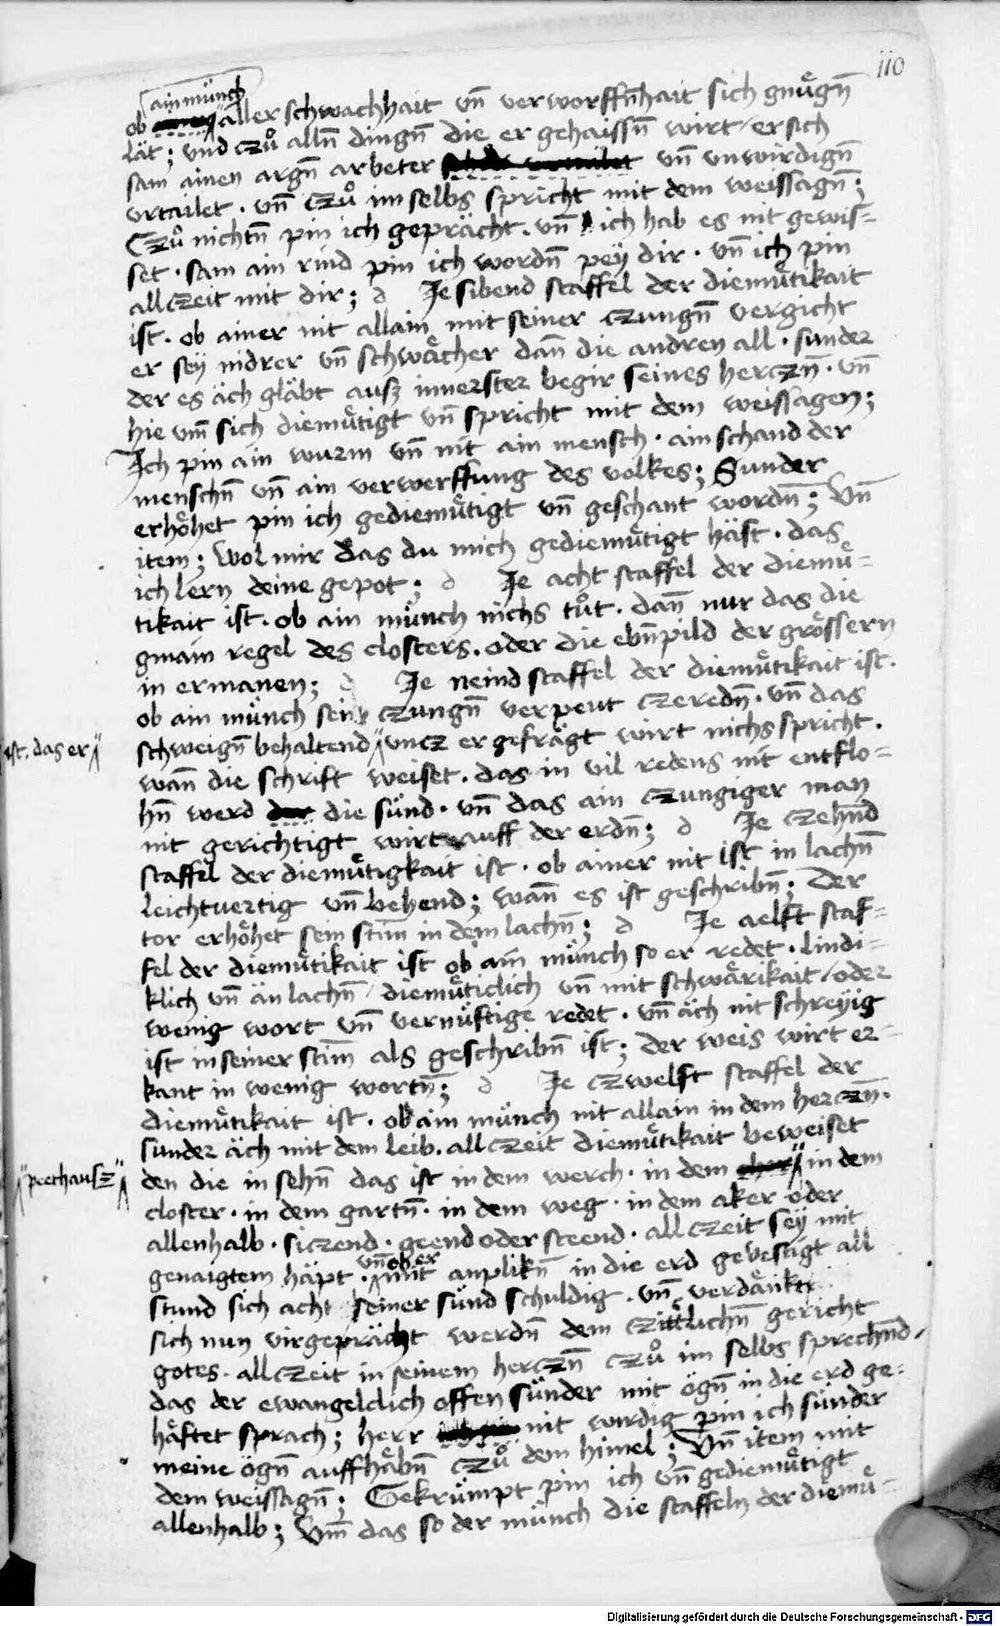 110
ain münch
ob aller schwachhait vn̄ verworffn̄hait sich gnuͤgn̄
lät; vnd czuͦ alln̄ dingn̄ die er gehaissn̄ wirt / er sich
sam ainen argn̄ arbeter vn̄ vnwirdign̄
vrtailet . vn̄ czuͦ im selbs spricht mit dem weissagn̄;
Czuͦ nichtn̄ pin ich geprächt . vn̄ ich hab es nit gewis⸗
set . sam ain rind pin ich wordn̄ pey dir . vn̄ ich pin
allczeit mit dir; d Je sibend staffel der diemuͤtikait
ist . ob ainer nit allain mit seiner czungn̄ vergicht
er sey nidrer vn̄ schwaͤcher dan̄ die andren all . sunder
der es äch gläbt ausz innerster begir seines herczn̄ . vn̄
hie vm̄ sich diemuͤtigt vn̄ spricht mit dem weissagen;
Ich pin ain wurm vn̄ nit ain mensch . ain schand der
menschn̄ vn̄ ain verwerffung des volkes; Sunder
erhoͤhet pin ich gediemuͤtigt vn̄ geschant wordn̄; Vn̄
item; wol mir das du mich gediemuͤtigt häst . das
ich lern deine gepot; d Je acht staffel der diemuͤ⸗
tikait ist . ob ain münch nichs tuͦt . dan̄ nur das die
gmain regel des closters . oder die ebn̄pild der groͤssern
in ermanen; d Je neind staffel der diemuͤtikait ist .
ob ain münch sein czungn̄ verpeut czeredn̄ . vn̄ das
ist . das er
schweign̄ behaltend vncz er gefrägt wirt nichs spricht .
wan̄ die schrift weiset . das in vil redens nit entflo⸗
hn̄ werd die sünd . vn̄ das ain czungiger man
nit gerichtigt wirt auff der erdn̄; d Je czehn̄d
staffel der diemuͤtigkait ist . ob ainer nit ist in lachn̄
leichtvertig vn̄ behend; wan̄ es ist geschribn̄; Der
tor erhoͤhet sein stim̄ in dem lachn̄; d Je aelft staf⸗
fel der diemuͤtikait ist ob ain münch so er redet . lindi⸗
klich vn̄ än lachn̄ / diemuͤticlich vn̄ mit schwaͤrikait / oder
wenig wort vn̄ vernüftige redet . vn̄ äch nit schreyig
ist in seiner stim̄ als geschribn̄ ist; der weis wirt er⸗
kant in wenig wortn̄; d Je czwelft staffel der
diemuͤtikait ist . ob ain münch nit allain in dem herczn̄ .
sunder äch mit dem leib . allczeit diemuͤtikait beweiset
pethausz
den die in sehn̄ das ist in dem werch . in dem in dem
closter . in dem gartn̄ . in dem weg . in dem aker oder
allenhalb . siczend . geend oder steend . allczeit sey mit
vn̄ ob er
genaigtem häpt . mit anplikn̄ in die erd gevestigt all
stund sich acht seiner sünd schuldig . vn̄ verdaͤnk
sich nun virgeprächt werdn̄ dem czitlichn̄ gericht
gotes . allczeit in seinem herczn̄ czuͦ im selbs sprechn̄d
das der ewangelclich offen sünder mit ögn̄ in die erd ge⸗
häftet sprach; herr nit wirdig pin ich sünder
meine ögn̄ auffhäbn̄ czuͦ den himel; Vn̄ item mit
dem weissagn̄; Gekrümpt pin ich vn̄ gediemuͤtigt
allenhalb; Vm̄ das so der münch die staffeln der diemuͤ⸗
Digitalisierung gefördert durch die Deutsche Forschungsgemeinschaft - DFG